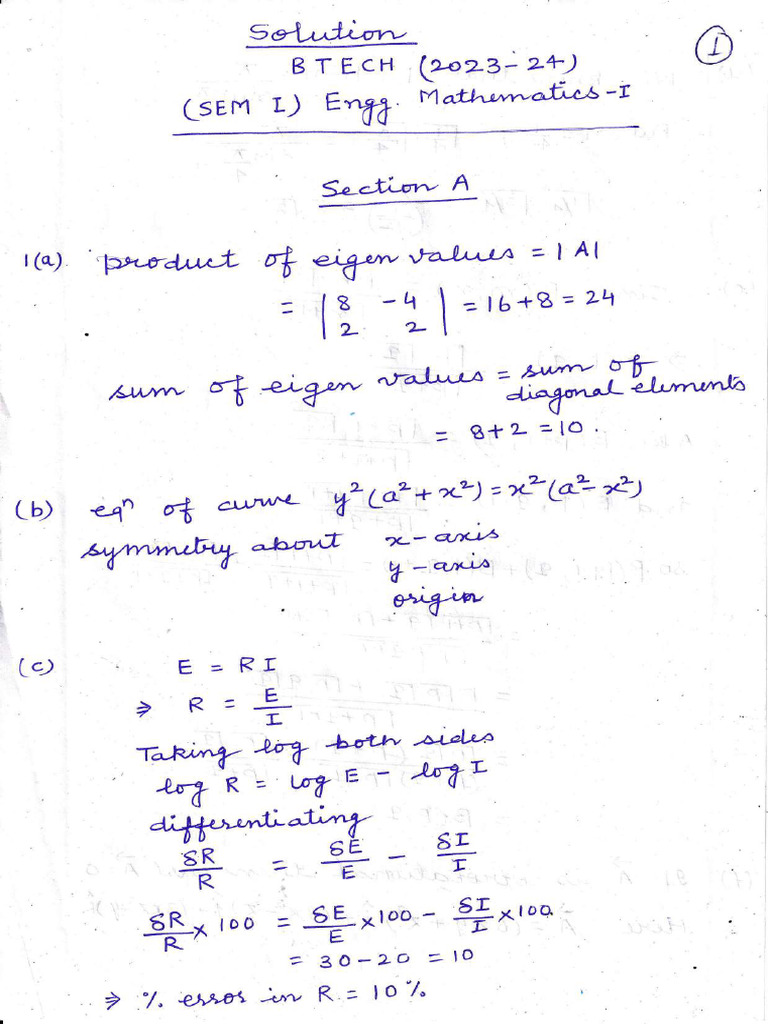 Solution
1
B TECH (2023-24)
(SEM I) Engg. Mathematics-I
Section A
1(a) product of eigen values = |A|
= | 8 -4 | = 16+8 = 24
2 2
sum of eigen values = sum of
diagonal elements
= 8+2 = 10.
(b) eqⁿ of curve y²(a²+x²) = x²(a²-x²)
symmetry about x-axis
y-axis
origin
(c) E = RI
⇒ R = E/I
Taking log both sides
log R = log E - log I
differentiating
δR/R = δE/E - δI/I
δR/R × 100 = δE/E × 100 - δI/I × 100.
= 30-20 = 10
⇒ % error in R = 10%.